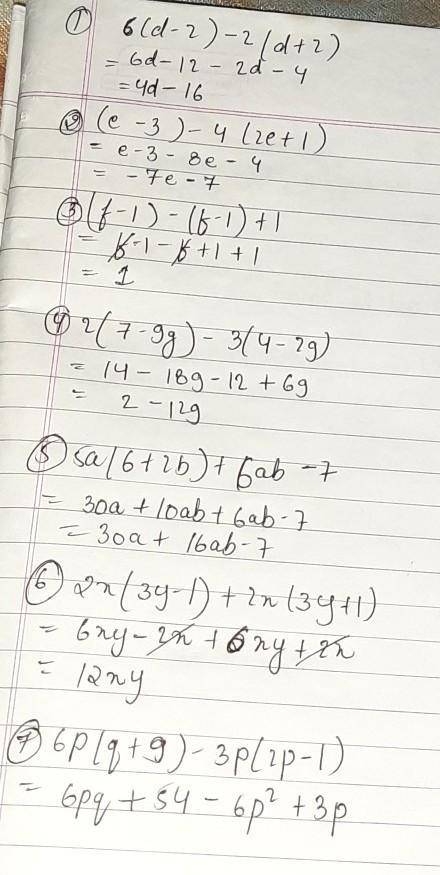 ① 6(d-2)-2(d+2)
= 6d-12-2d-4
= 4d-16
② (e-3)-4(2e+1)
= e-3-8e-4
= -7e-7
③ (f-1)-(f-1)+1
= f-1-f+1+1
= 1
④ 2(7-9g)-3(4-2g)
= 14-18g-12+6g
= 2-12g
⑤ 5a(6+2b)+6ab-7
= 30a+10ab+6ab-7
= 30a+16ab-7
⑥ 2x(3y-1)+2x(3y+1)
= 6xy-2x+6xy+2x
= 12xy
⑦ 6p(q+9)-3p(2p-1)
= 6pq+54-6p²+3p